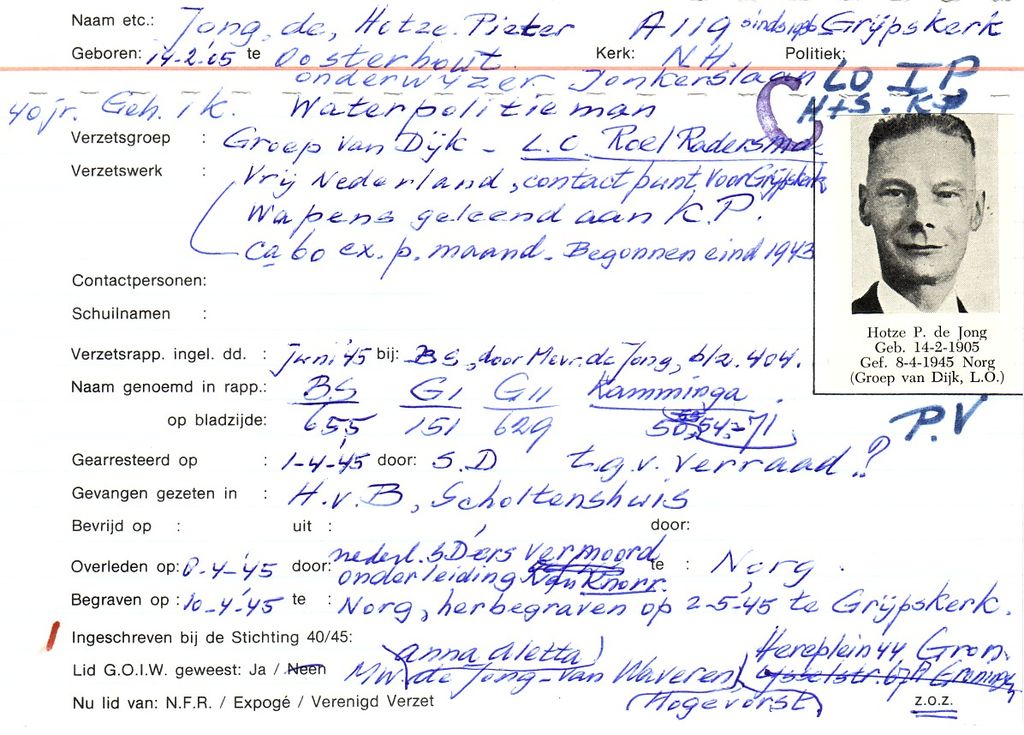 Naam etc.: Jong, de, Hotze Pieter A119 sinds 1936 Grijpskerk
Geboren: 14-2-'05 te Oosterhout Kerk: N.H. Politiek:
onderwijzer Jonkerslaan LO IP
40 jr. Geh. 1 k. Waterpolitieman H+S. KP
C
Verzetsgroep : Groep van Dijk - L.O. Roel Radersma
Verzetswerk : Vrij Nederland, contactpunt voor Grijpskerk
Wapens geleend aan K.P.
ca 60 ex. p. maand. Begonnen eind 1943
Contactpersonen:
Schuilnamen :
Hotze P. de Jong
Geb. 14-2-1905
Gef. 8-4-1945 Norg
(Groep van Dijk, L.O.)
Verzetsrapp. ingel. dd. : Juni '45 bij: BS, door Mevr. de Jong, blz. 404.
Naam genoemd in rapp.: BS GI GII Kamminga
op bladzijde: 655 151 629 50, 54-71
P.V
Gearresteerd op : 1-4-'45 door: S.D t.g.v. verraad?
Gevangen gezeten in : H.v.B, Scholtenshuis
Bevrijd op : uit : door:
Overleden op: 8-4-'45 door: nederl. SD'ers vermoord te : Norg.
onder leiding van Knorr.
Begraven op : 10-4-'45 te : Norg, herbegraven op 2-5-45 te Grijpskerk.
Ingeschreven bij de Stichting 40/45:
Anna Aletta Hereplein 44 Gron.
Lid G.O.I.W. geweest: Ja / Neen Mw. de Jong-van Waveren, Ijsselstr. Groningen
Nu lid van: N.F.R. / Expogé / Verenigd Verzet (Hogevorst) z.o.z.